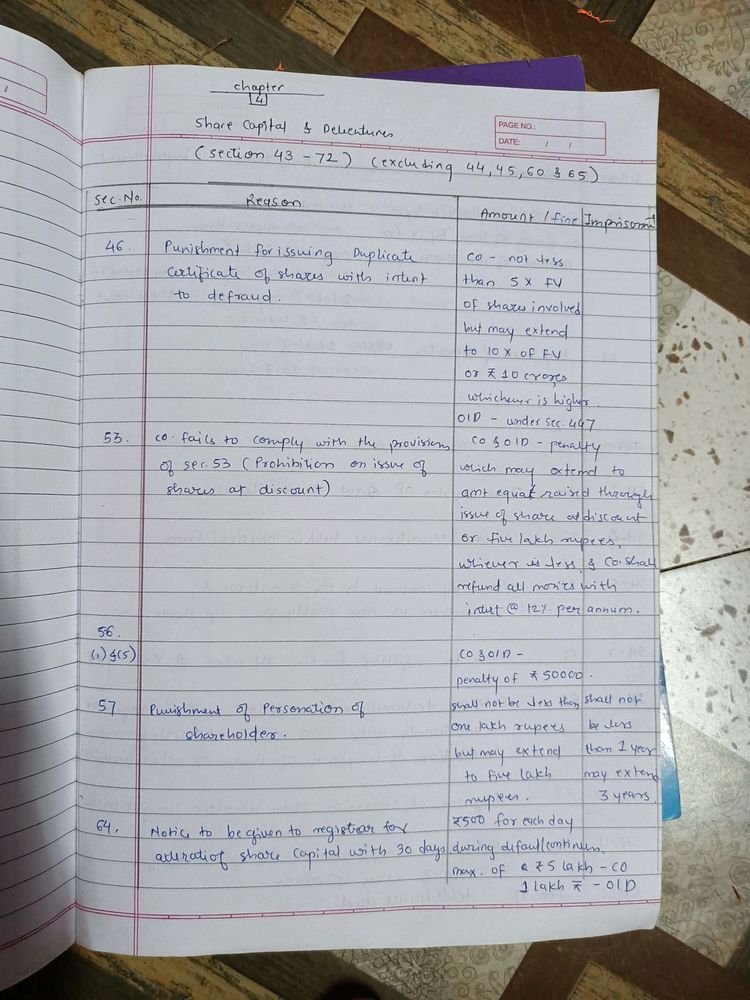 chapter
4
Share Capital & Debentures
PAGE NO.:
DATE: / /
(section 43 - 72) (excluding 44, 45, 60 & 65)
Sec. No. Reason Amount / fine Imprisoment
46. Punishment for issuing Duplicate CO - not less
certificate of shares with intent than 5 X FV
to defraud. of shares involved
but may extend
to 10 X of FV
or ₹ 10 crores,
whichever is higher.
OID - under sec. 447
53. co. fails to comply with the provisions CO & OID - penalty
of sec. 53 (Prohibition on issue of which may extend to
shares at discount) amt equal raised through
issue of share at discount
or five lakh rupees,
whiever is less, & Co. shall
refund all monies with
intret @ 12% per annum.
56.
(1) & (5) CO & OID -
penalty of ₹ 50000.
57 Punishment of Personation of shall not be less than shall not
shareholder. one lakh rupees be less
but may extend than 1 year
to five lakh may extend
rupees. 3 years.
64. Notice to be given to registrar for ₹500 for each day
share Capital with 30 days during default
max. of ₹ 5 lakh - CO
1 lakh ₹ - OID